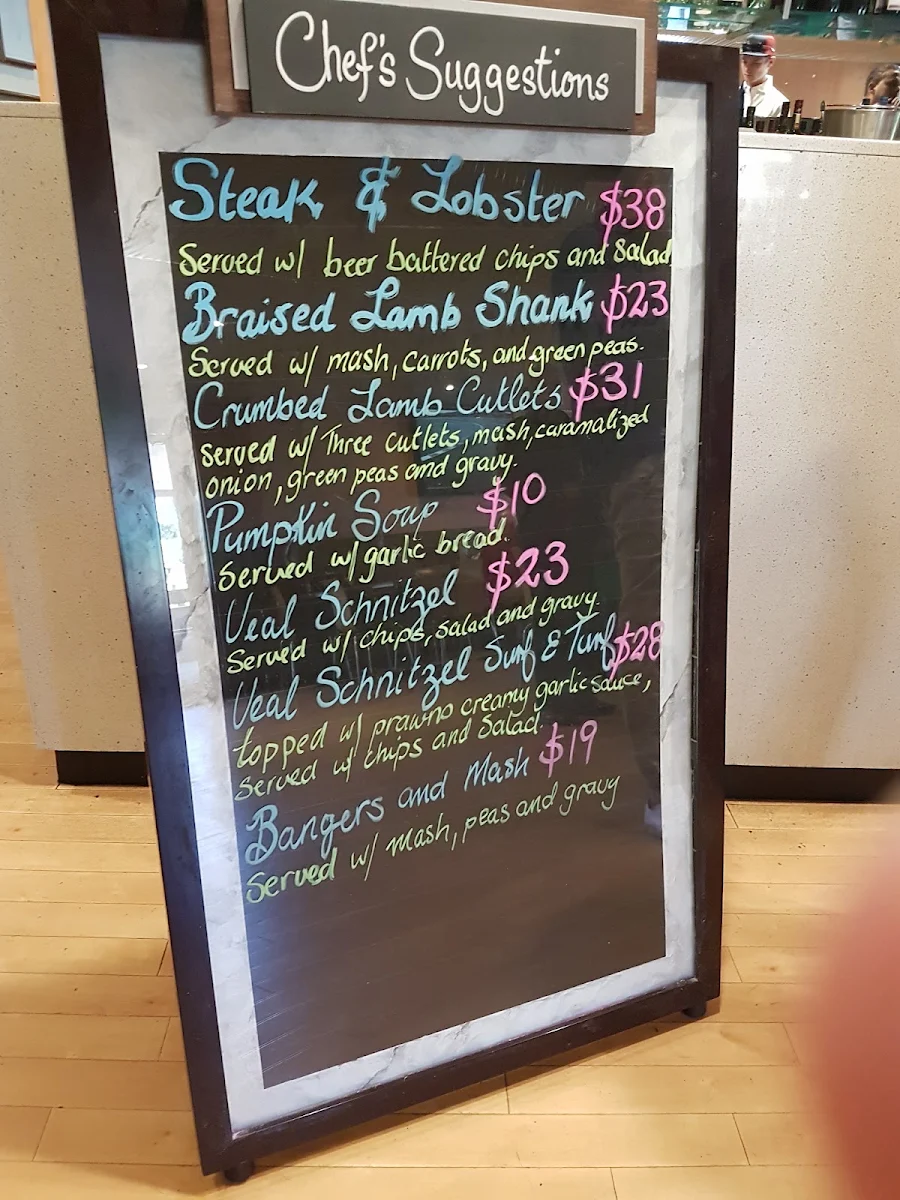 Chef's Suggestions
Steak & Lobster $38
Served w/ beer battered chips and Salad
Braised Lamb Shank $23
Served w/ mash, carrots, and green peas.
Crumbed Lamb Cutlets $31
served w/ Three cutlets, mash, caramalized
onion, green peas and gravy.
Pumpkin Soup $10
Served w/ garlic bread.
Veal Schnitzel $23
Served w/ chips, salad and gravy.
Veal Schnitzel Surf & Turf $28
topped w/ prawns creamy garlic sauce,
Served w/ chips and Salad.
Bangers and Mash $19
Served w/ mash, peas and gravy